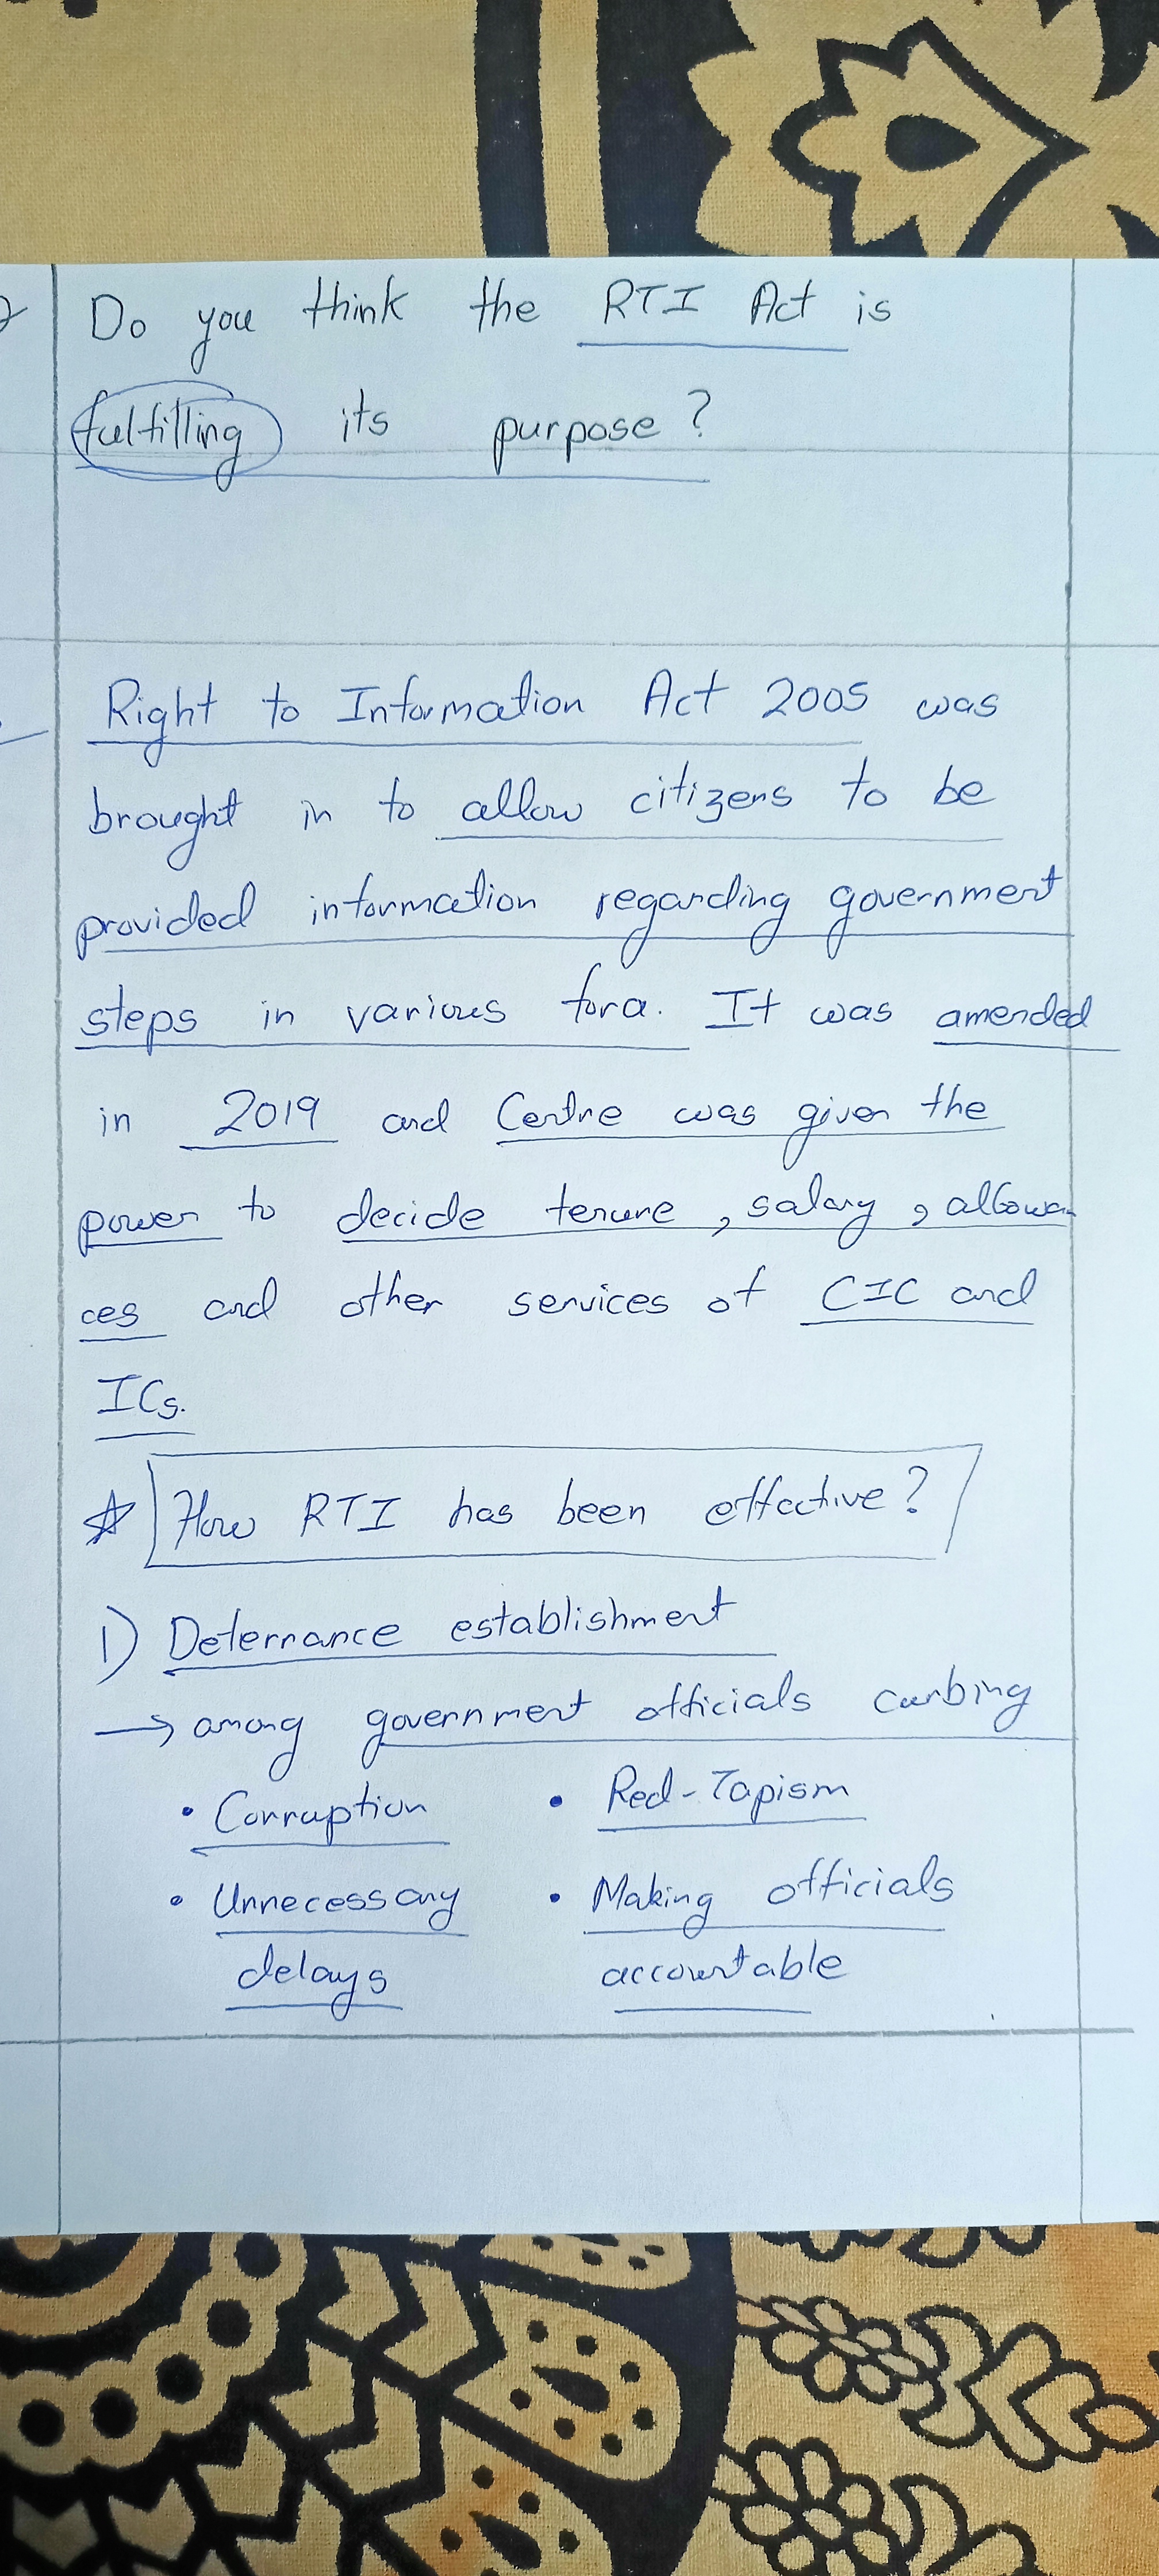 Do you think the RTI Act is
fulfilling its purpose?
Right to Information Act 2005 was
brought in to allow citizens to be
provided information regarding government
steps in various fora. It was amended
in 2019 and Centre was given the
power to decide tenure, salary, allowan
ces and other services of CIC and
ICs.
☆ How RTI has been effective?
1) Deterrance establishment
→ among government officials curbing
• Corruption • Red-Tapism
• Unnecessary • Making officials
delays accountable